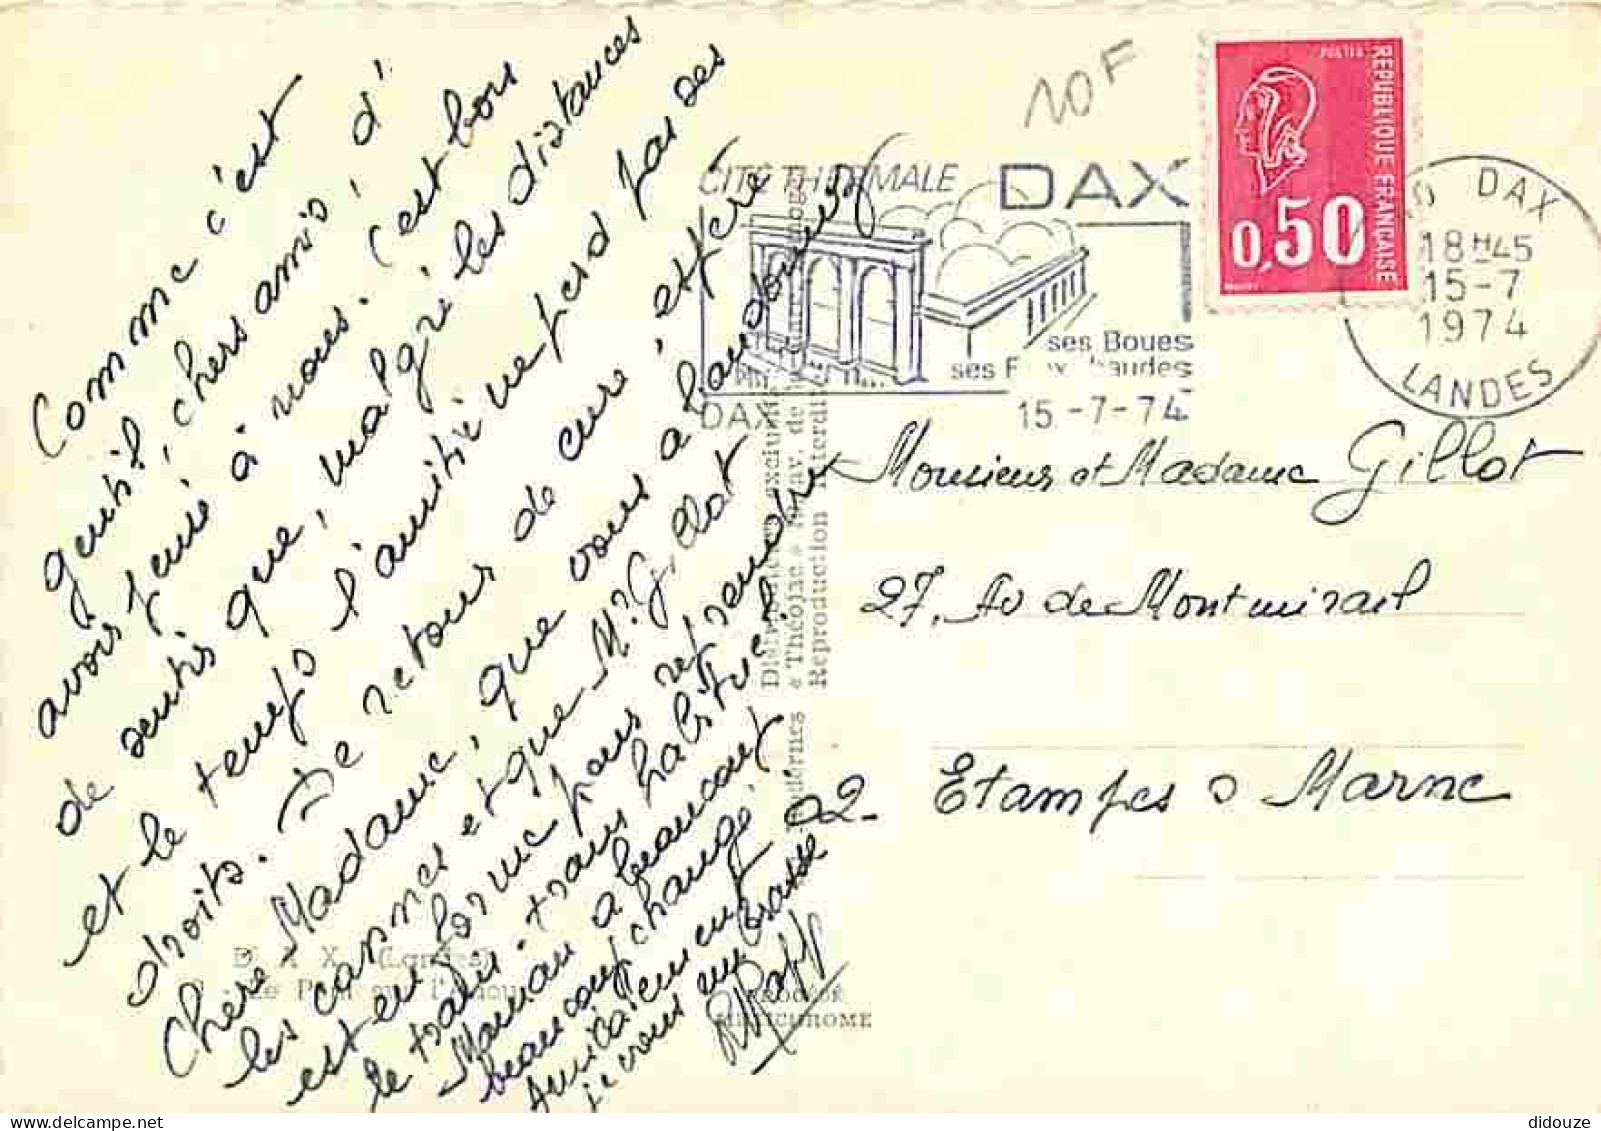 Comme c'est
gentil, chers amis, d'
avoir pensé à nous. C'est bon
de sentir que, malgré les distances
et le temps l'amitié ne perd pas ses
droits. De retour de cure j'espère
Chère Madame, que vous a
les cannes et que Mr. Gillot
est en forme pour reprendre
le train-train habituel.
Maman a beaucoup
beaucoup changé.
Amicalement
je vous embrasse
10F
CITÉ THERMALE DAX
ses Boues
ses Eaux chaudes
DAX 15-7-74
RÉPUBLIQUE FRANÇAISE
0,50
DAX
18H45
15-7
1974
LANDES
Monsieur et Madame Gillot
27, Av de Montmirail
02- Etampes s Marne
DAX (Landes)
Le Pont sur l'Adour
« Théojac »
Reproduction interdite
didouze